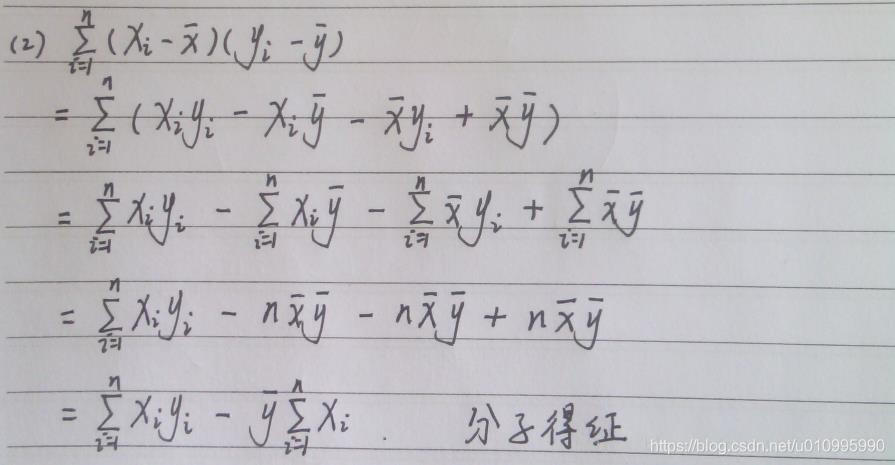 (2) $\sum_{i=1}^{n} (x_i - \bar{x})(y_i - \bar{y})$
$= \sum_{i=1}^{n} (x_i y_i - x_i \bar{y} - \bar{x} y_i + \bar{x}\bar{y})$
$= \sum_{i=1}^{n} x_i y_i - \sum_{i=1}^{n} x_i \bar{y} - \sum_{i=1}^{n} \bar{x} y_i + \sum_{i=1}^{n} \bar{x}\bar{y}$
$= \sum_{i=1}^{n} x_i y_i - n\bar{x}\bar{y} - n\bar{x}\bar{y} + n\bar{x}\bar{y}$
$= \sum_{i=1}^{n} x_i y_i - \bar{y} \sum_{i=1}^{n} x_i$ . 分子得证
https://blog.csdn.net/u010995990